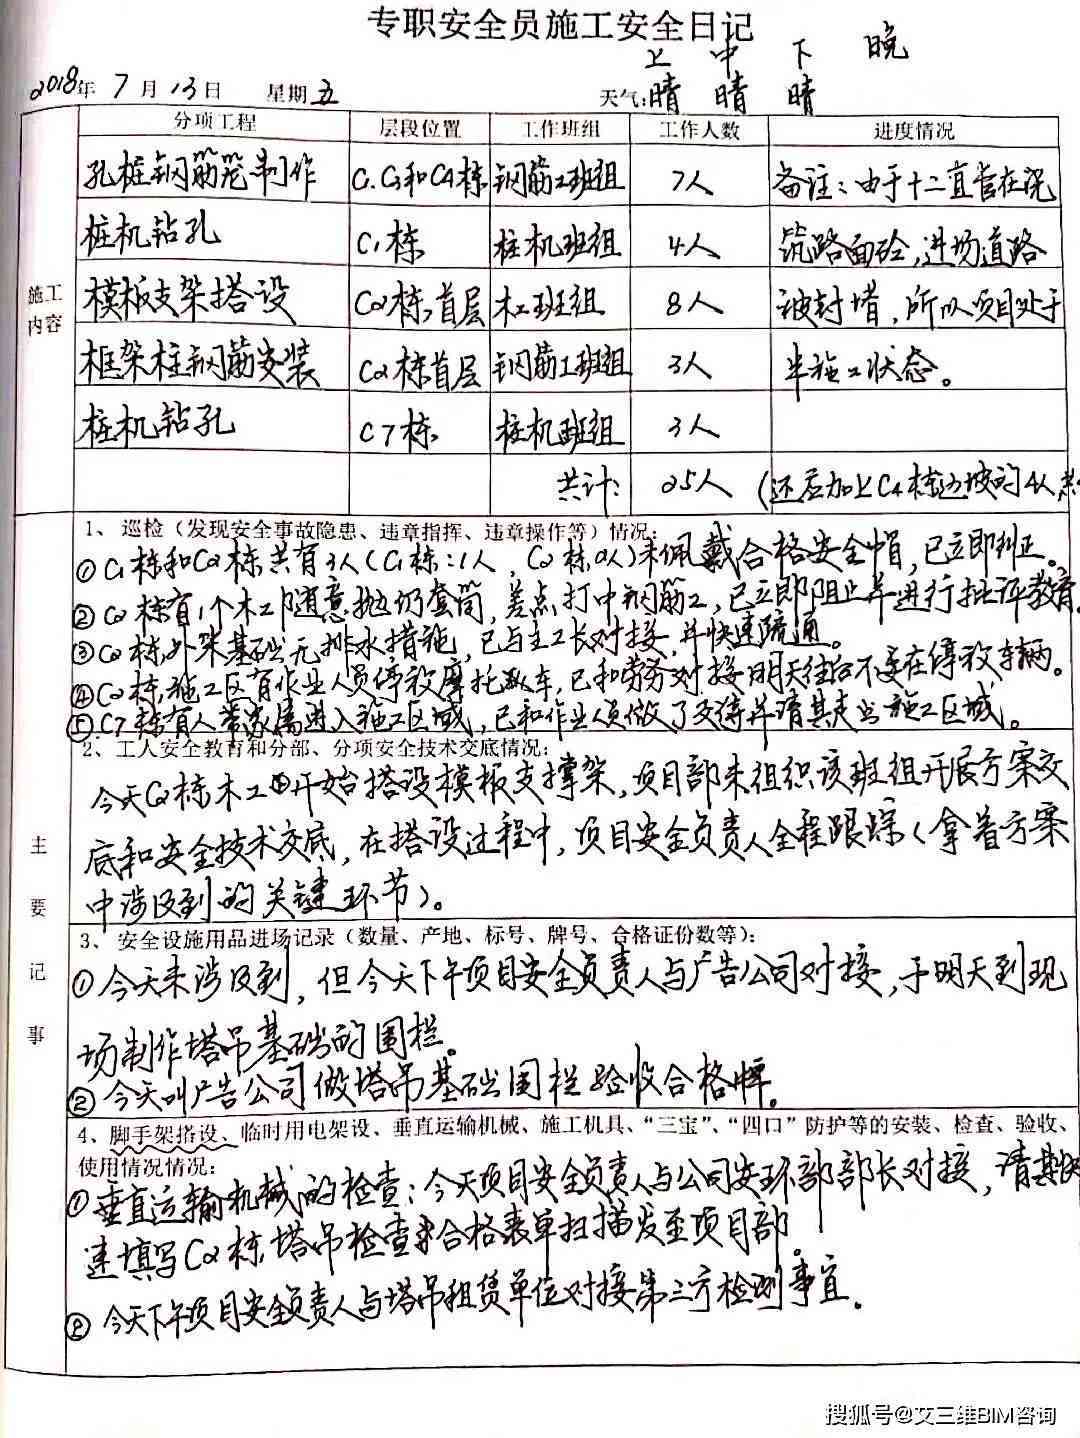 专职安全员施工安全日记
上 中 下 晚
2018年 7月 13日 星期五 天气:晴 晴 晴
分项工程 层段位置 工作班组 工作人数 进度情况
孔桩钢筋笼制作 C1、C3和C4栋 钢筋工班组 7人 备注：由于十二直管在浇
桩机钻孔 C1栋 桩机班组 4人 筑路面砼,进场道路
施工
内容
模板支架搭设 C2栋,首层 木工班组 8人 被封堵，所以项目处于
框架柱钢筋安装 C2栋首层 钢筋工班组 3人 半施工状态。
桩机钻孔 C7栋 桩机班组 3人
共计： 25人 (还应加上C4栋边坡的4人
主要记事
1、巡检（发现安全事故隐患、违章指挥、违章操作等）情况：
①C1栋和C2栋共有3人(C1栋：1人，C2栋2人)未佩戴合格安全帽，已立即纠正。
②C2栋有1个木工随意抛扔套筒，差点打中钢筋工，已立即阻止并进行批评教育
③C2栋,外架基础无排水措施，已与主工长对接，并快速疏通。
④C2栋,施工区有作业人员停放摩托车,已和劳务对接明天往后不要在停放车辆。
⑤C7栋有人带家属进入施工区域，已和作业人员做了交待并请其走出施工区域。
2、工人安全教育和分部、分项安全技术交底情况：
今天C2栋木工开始搭设模板支撑架，项目部未组织该班组开展方案交
底和安全技术交底，在搭设过程中，项目安全负责人全程跟踪（拿着方案
中涉及到的关键环节）。
3、安全设施用品进场记录（数量、产地、标号、牌号、合格证份数等）：
①今天未涉及到，但今天下午项目安全负责人与广告公司对接，于明天到现
场制作塔吊基础的围栏。
②今天叫广告公司做塔吊基础围栏验收合格牌。
4、脚手架搭设、临时用电架设、垂直运输机械、施工机具、“三宝”、“四口”防护等的安装、检查、验收、
使用情况情况：
①垂直运输机械的检查：今天项目安全负责人与公司安环部部长对接，请其快
速填写C2栋,塔吊检查合格表单扫描发至项目部。
②今天下午项目安全负责人与塔吊租赁单位对接第三方检测事宜。
搜狐号@艾三维BIM咨询